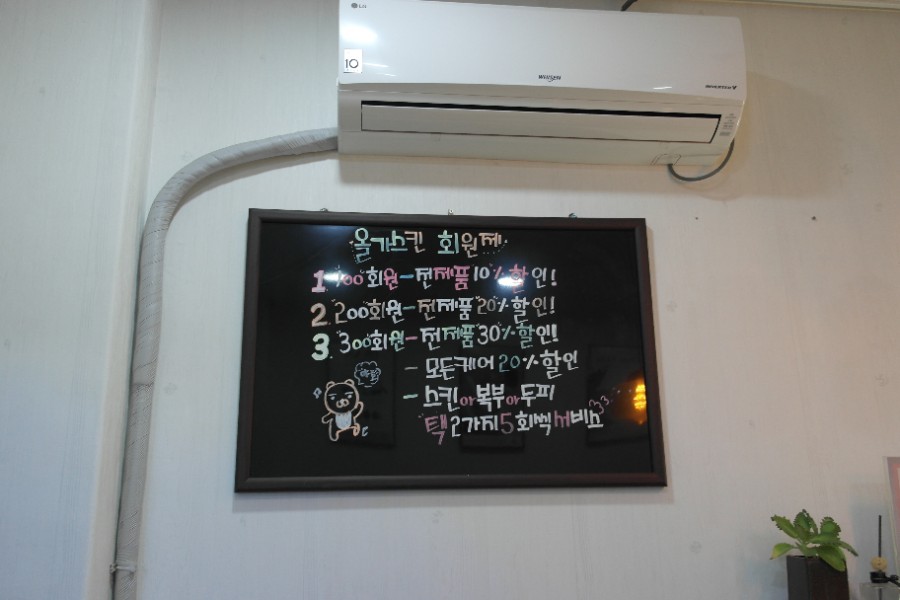 LG
10
WHISEN
INVERTER V
올가스킨 회원제
1. 100회원-전제품10%할인!
2. 200회원-전제품20%할인!
3. 300회원-전제품30%할인!
- 모든케어20%할인
- 스킨or복부or두피
택2가지5회씩서비스